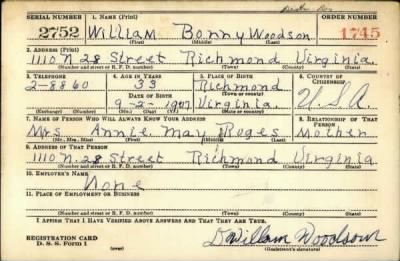 SERIAL NUMBER 1. NAME (Print) ORDER NUMBER
2752 William Bonny Woodson 1745
(First) (Middle) (Last)
2. ADDRESS (Print)
1110 N 28 Street Richmond Virginia.
(Number and street or R. F. D. number) (Town) (County) (State)
3. TELEPHONE 4. AGE IN YEARS 5. PLACE OF BIRTH 6. COUNTRY OF CITIZENSHIP
2-8860 33 Richmond
DATE OF BIRTH (Town or county)
9-2-1907 Virginia. U.S.A.
(Exchange) (Number) (Mo.) (Day) (Yr.) (State or country)
7. NAME OF PERSON WHO WILL ALWAYS KNOW YOUR ADDRESS 8. RELATIONSHIP OF THAT PERSON
Mrs. Annie May Roges Mother
(Mr., Mrs., Miss) (First) (Middle) (Last)
9. ADDRESS OF THAT PERSON
1110 N. 28 Street Richmond Virginia
(Number and street or R. F. D. number) (Town) (County) (State)
10. EMPLOYER'S NAME
None
11. PLACE OF EMPLOYMENT OR BUSINESS
(Number and street or R. F. D. number) (Town) (County) (State)
I AFFIRM THAT I HAVE VERIFIED ABOVE ANSWERS AND THAT THEY ARE TRUE.
REGISTRATION CARD
D. S. S. Form 1 (over) William Woodson
(Registrant's signature)